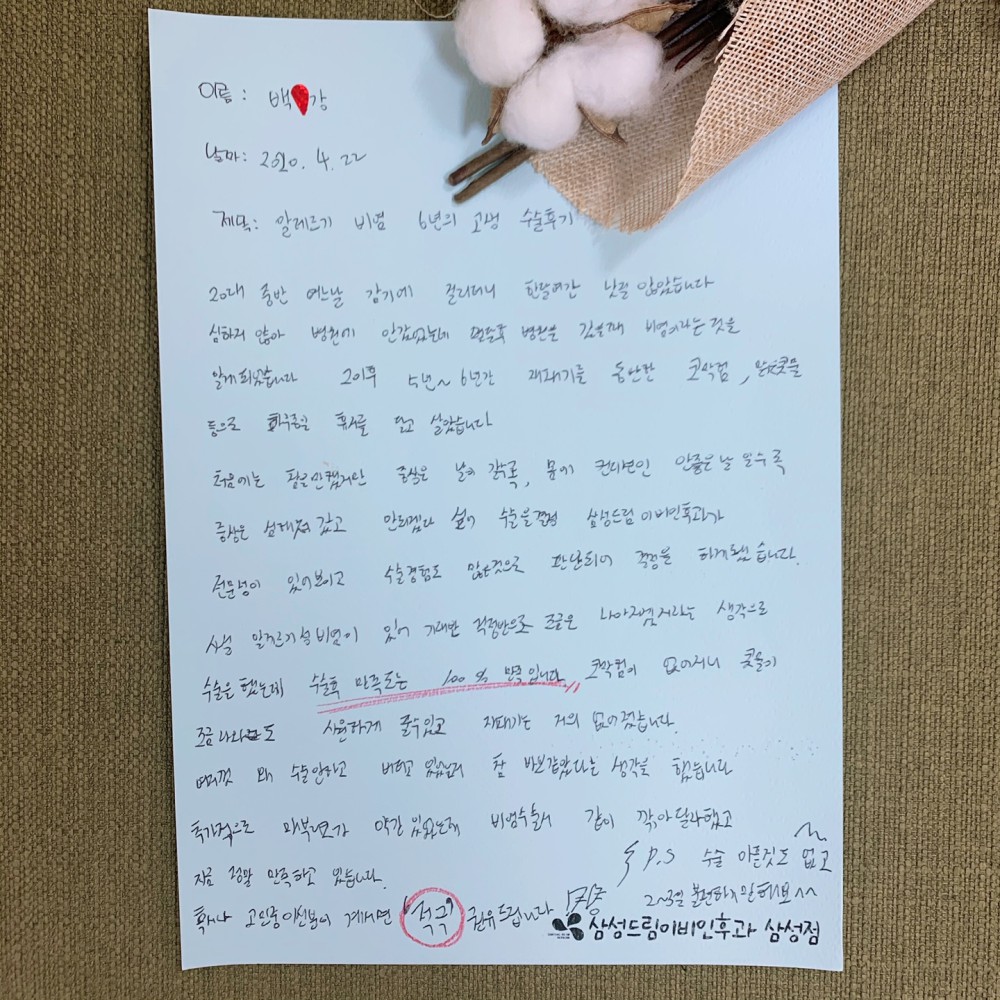 이름: 백 강
날짜: 2020. 4. 22
제목: 알레르기 비염 6년의 고생 수술후기
20대 중반 어느날 감기에 걸리더니 한달여간 낫질 않았습니다
심하지 않아 병원에 안갔었는데 한달후 병원을 갔을때 비염이라는 것을
알게되었습니다 그이후 5년~6년간 재채기를 동반한 코막힘, 맑은콧물
등으로 하루종일 휴지를 달고 살았습니다
처음에는 괜찮았지만 증상은 날이 갈수록, 몸에 컨디션이 안좋은날 일수록
증상은 심해져 갔고 안되겠다 싶어 수술을결정 삼성드림이비인후과가
전문성이 있어보이고 수술경험도 많은것으로 판단되어 결정을 하게됐습니다.
사실 알레르기성비염이 있어 기대반 걱정반으로 조금은 나아지겠지라는 생각으로
수술을했는데 수술후 만족도는 100% 만족입니다 코막힘이 없어지니 콧물이
조금나와도 시원하게 풀수있고 재채기는 거의 없어졌습니다.
여태껏 왜 수술안하고 버티고 있었는지 참 바보같았다는 생각을 했습니다
추가적으로 매부리코가 약간 있었는데 비염수술시 같이 깎아달라했고
지금 정말 만족하고 있습니다.
혹시나 고민중이신분이 계시면 "적극" 권유드립니다
P.S 수술 아픈것도 없고
2~3일 불편하지만 해보^^
삼성드림이비인후과 삼성점